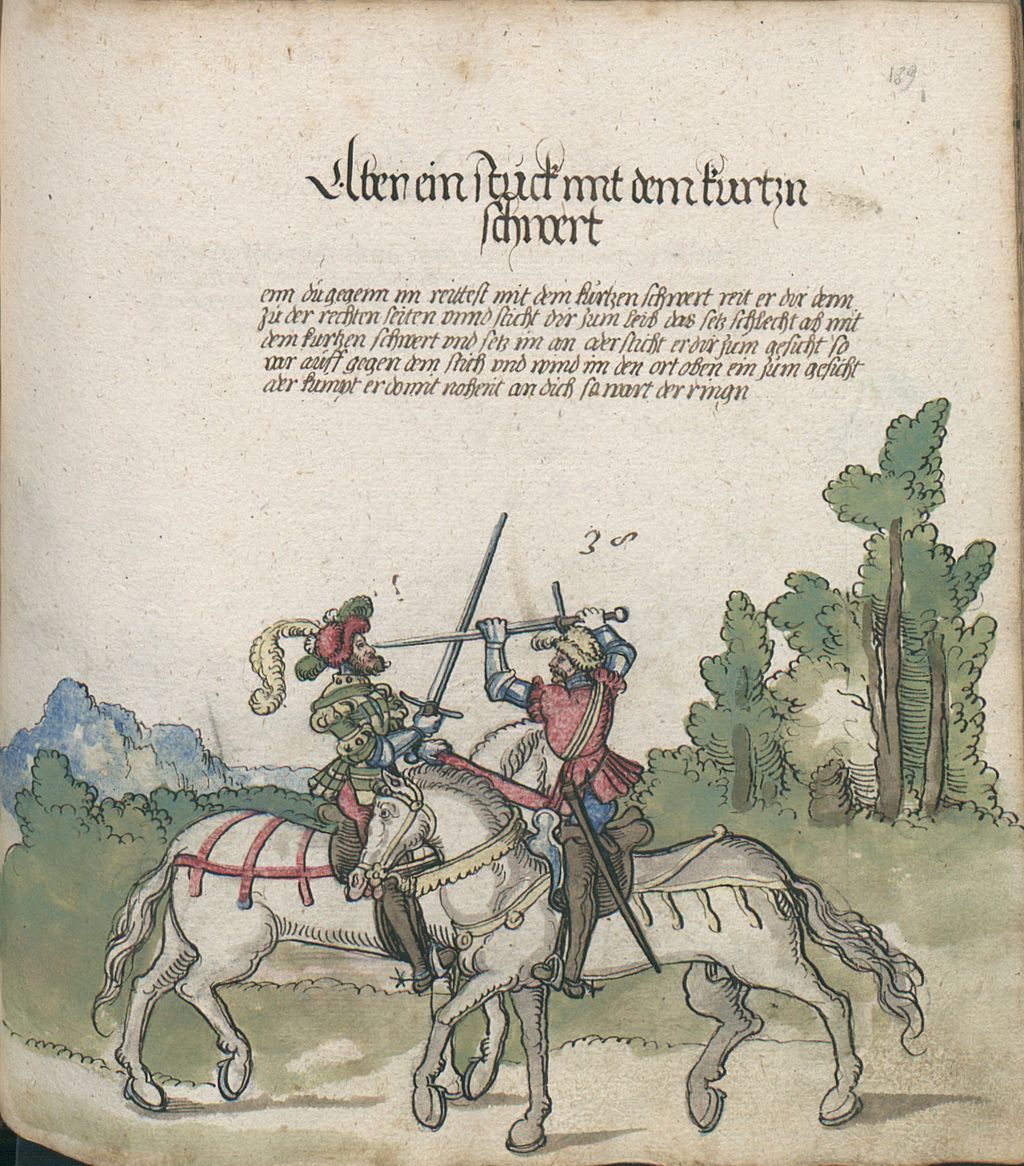 189
Aben ein stuck mit dem kurtzn
schwert
enn du gegenn im reittest mit dem kurtzen schwert reit er dir denn
zu der rechten seiten vnnd sticht dir zum leib das setz schlecht ab mit
dem kurtzen schwert vnd setz im an ader sticht er dir zum gesicht so
var auff gegen dem stich vnd wind im den ort oben ein zum gesicht
ader kumpt er domit nohent an dich so wart der ringn
38